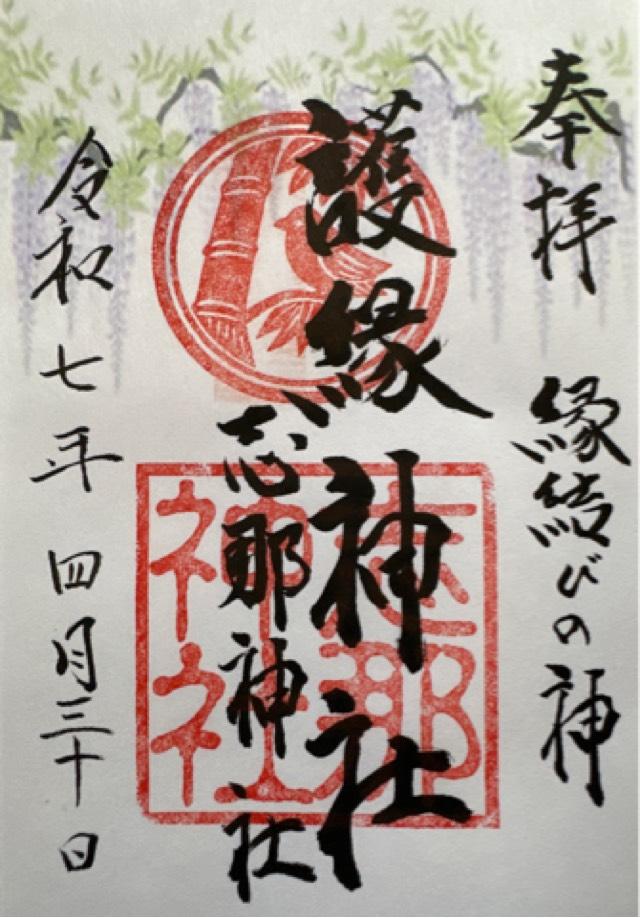 奉拝 縁結びの神
護縁神社
志那神社
令和七年 四月三十日
志那
神社